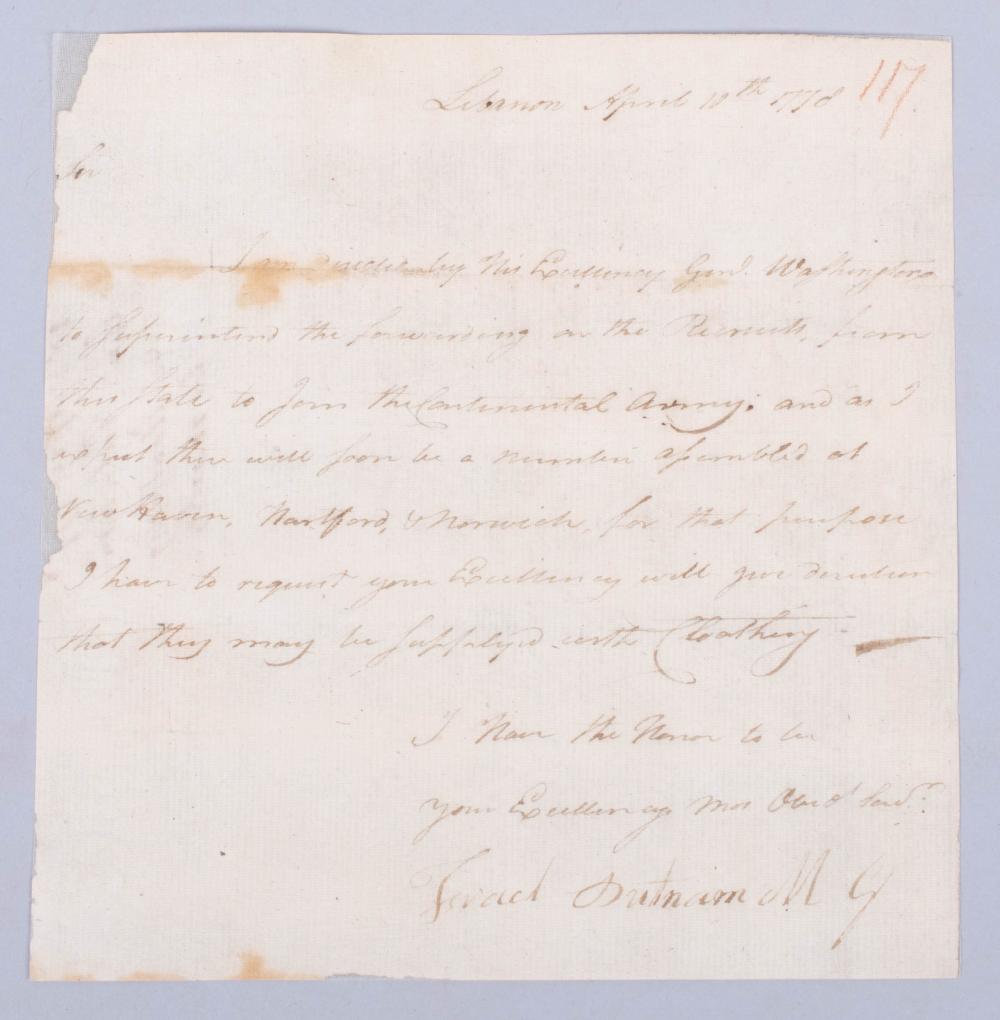 Lebanon April 10th 1778 117
Sir
I am ordered by His Excellency Genl. Washington
to Superintend the forwarding on the Recruits, from
this State to Join the Continental Army; and as I
expect there will soon be a number assembled at
New Haven, Hartford, & Norwich, for that purpose
I have to request your Excellency will give direction
that they may be supplyed with Cloathing
I Have the Honor to be
your Excellencys Mos Obedt Servt
Israel Putnam M G